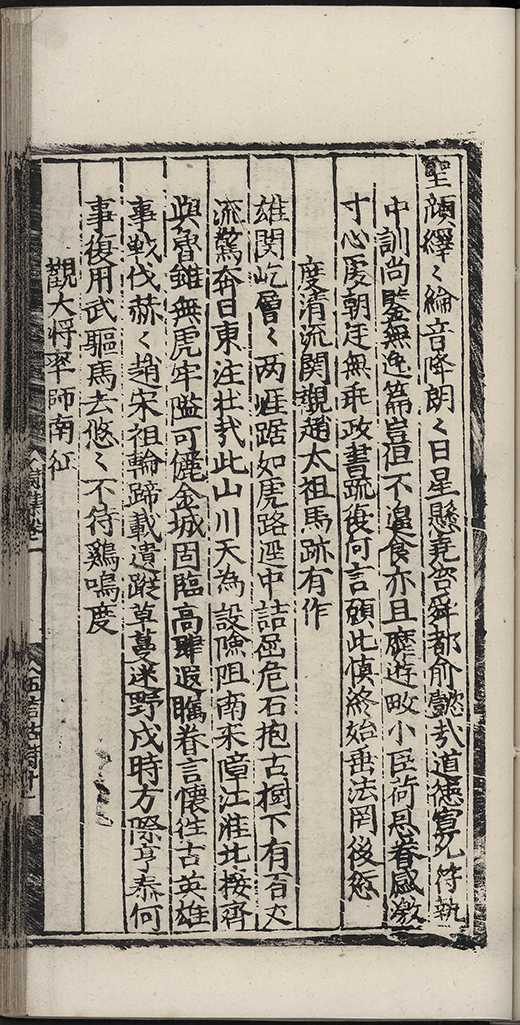 聖顔繹〻綸音降朗〻日星懸堯咨舜都俞懿㢤道徳㝢允符執
中訓尚鑒無逸篇豈但不遑食亦且靡遊畋小臣荷恩眷感激
寸心虔朝廷無乖政書疏復何言願此慎終始垂法罔後愆
度清流関觀趙太祖馬跡有作
雄関屹層〻两崕踞如虎路遥中詰屈危石抱古樹下有百丈
流驚奔日東注壮㢤此山川天為設險阻南来障江淮北接齊
與魯雖無虎牢隘可儷金城固臨高肆遐矚眷言懐往古英雄
事戦伐赫〻趙宋祖輪蹄載遺蹤草蔓迷野戍時方際亨泰何
事復用武驅馬去悠〻不待鷄鳴度
觀大将率師南征
五言古詩十一